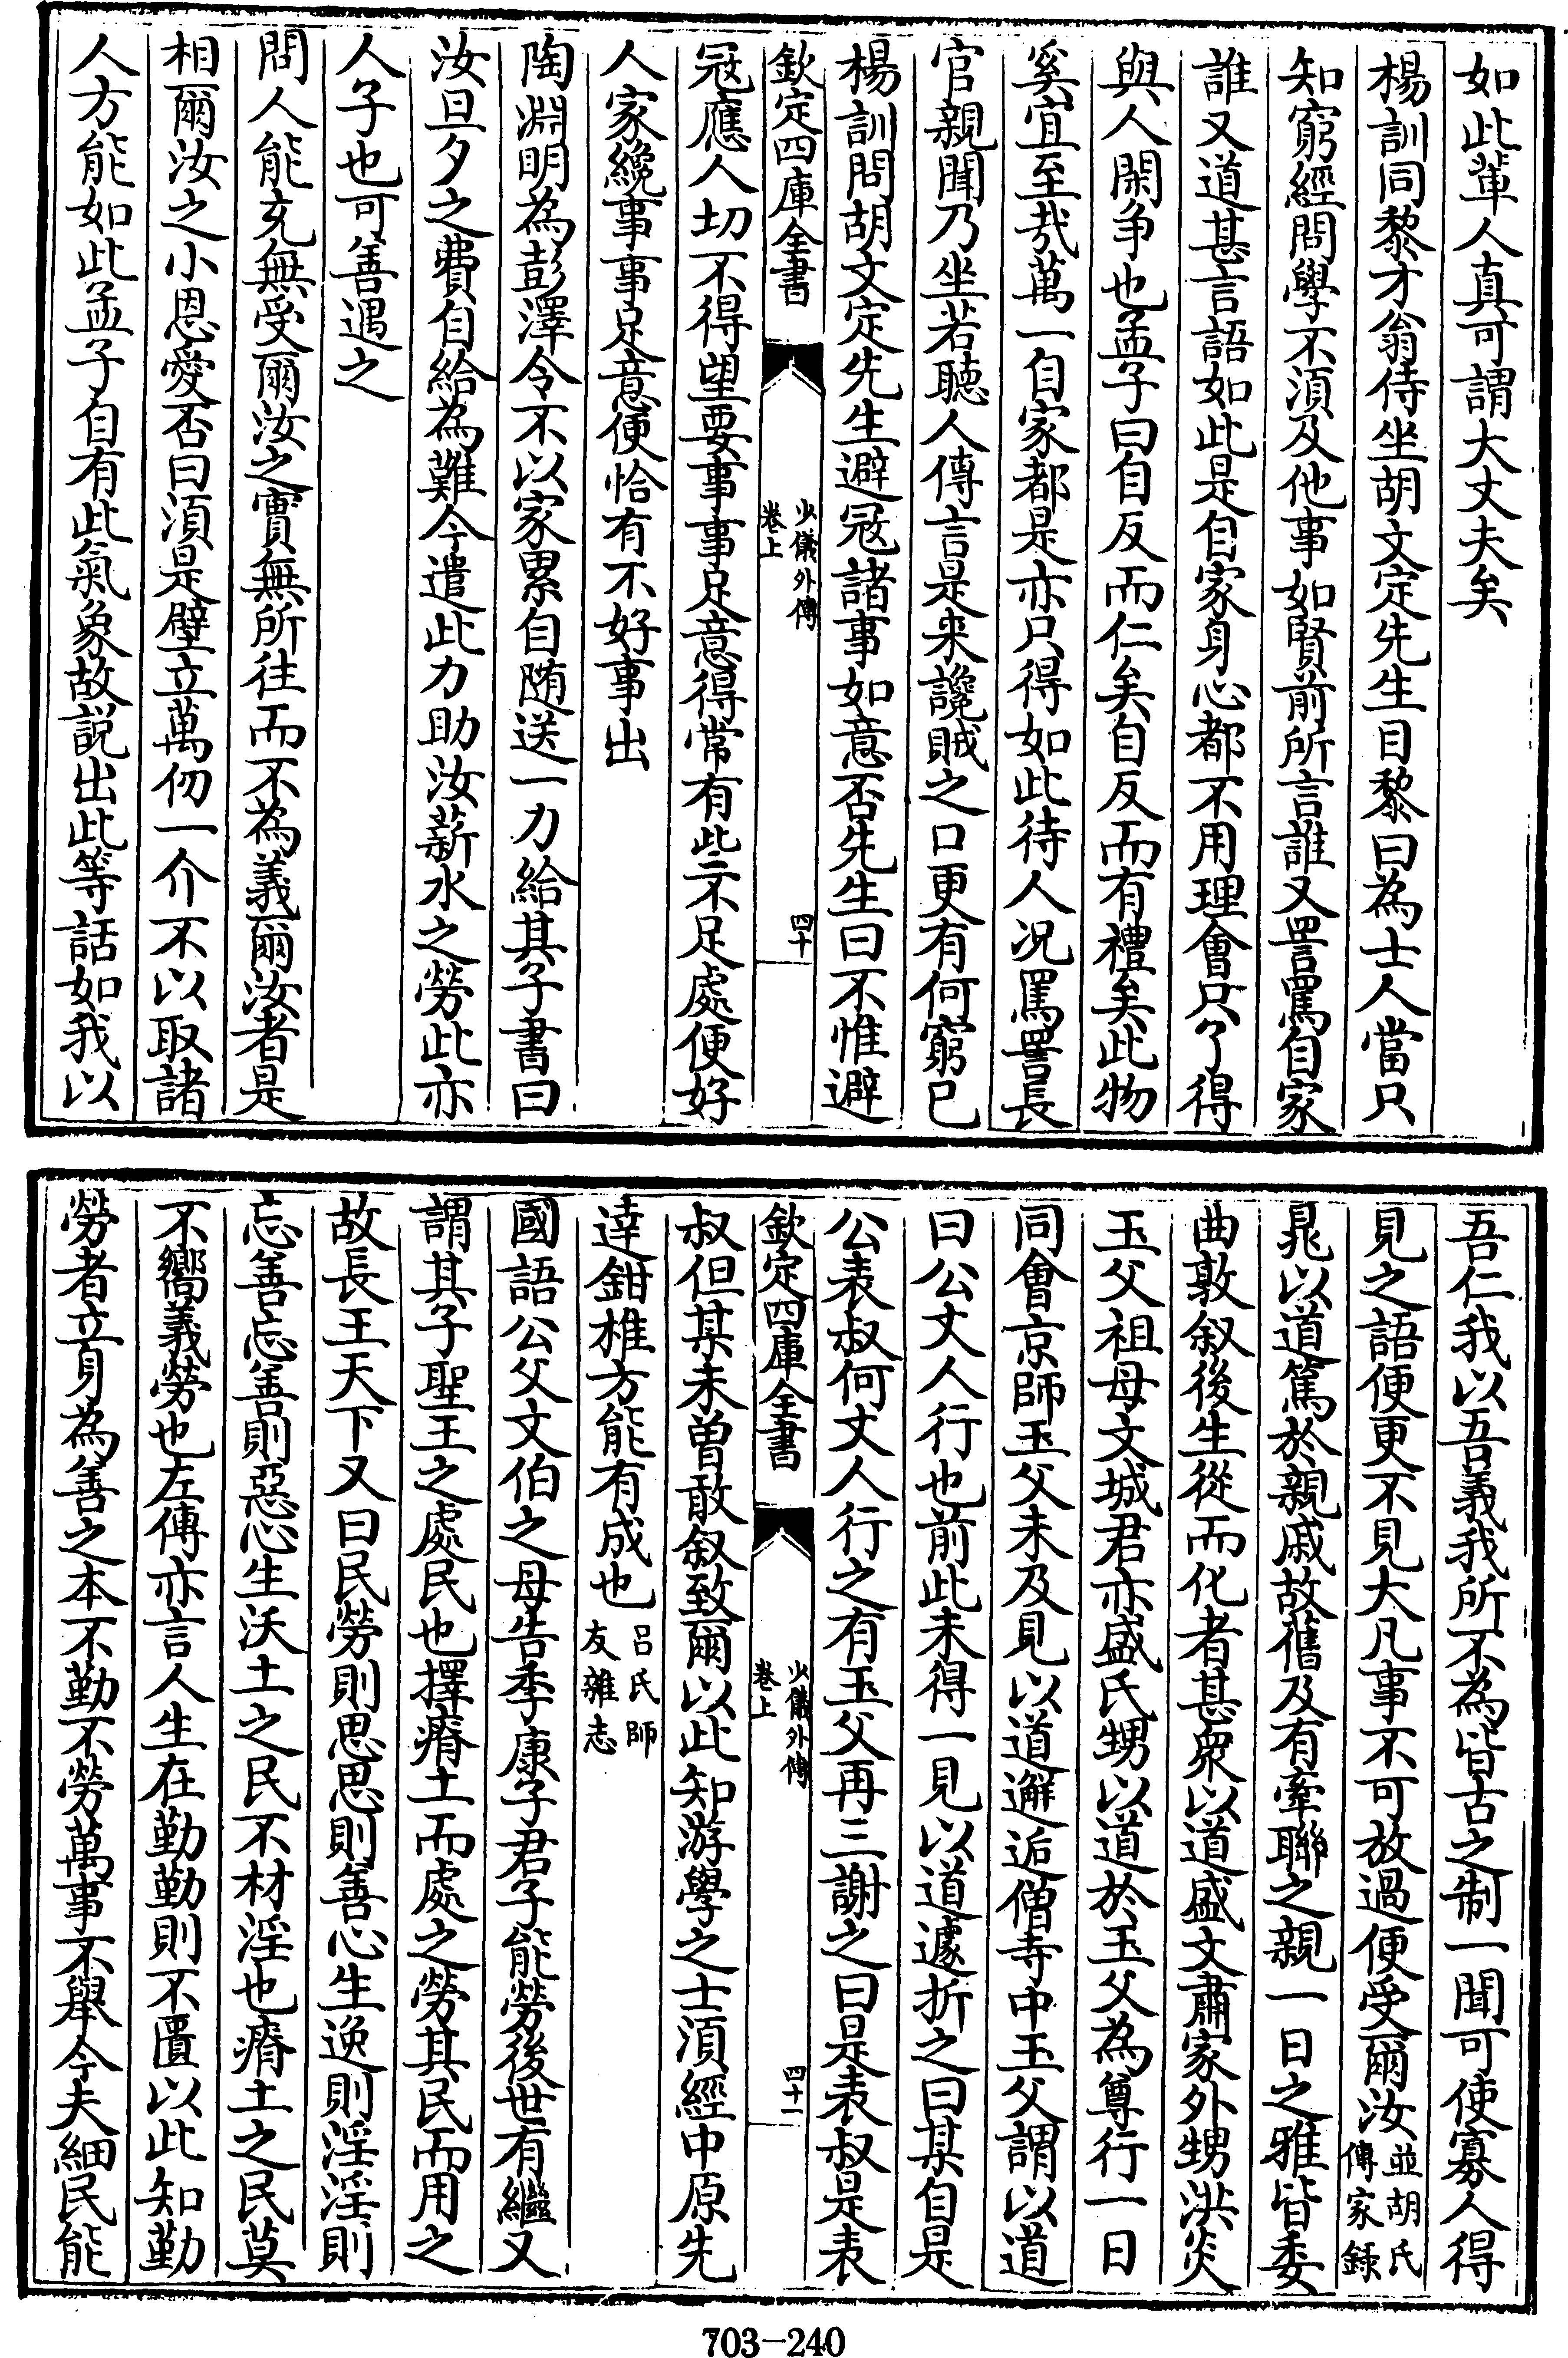 如此輩人真可謂大丈夫矣
楊訓同黎才翁侍坐胡文定先生目黎曰為士人當只
知窮經問學不須及他事如賢前所言誰又詈罵自家
誰又道甚言語如此是自家身心都不用理會只了得
與人閑争也孟子曰自反而仁矣自反而有禮矣此物
奚宜至哉萬一自家都是亦只得如此待人况罵詈長
官親聞乃坐若聽人傳言是来讒賊之口更有何窮已
楊訓問胡文定先生避冦諸事如意否先生曰不惟避
欽定四庫全書
少儀外傳
卷上
四十
冦應人切不得望要事事足意得常有些不足處便好
人家纔事事足意便恰有不好事出
陶淵明為彭澤令不以家累自随送一力給其子書曰
汝旦夕之費自給為難今遣此力助汝薪水之勞此亦
人子也可善遇之
問人能充無受爾汝之實無所往而不為義爾汝者是
相爾汝之小恩愛否曰須是壁立萬仞一介不以取諸
人方能如此孟子自有此氣象故說出此等話如我以
吾仁我以吾義我所不為皆古之制一聞可使寡人得
見之語便更不見大凡事不可放過便受爾汝並胡氏傳家録
晁以道篤於親戚故舊及有牽聯之親一日之雅皆委
曲敦叙後生從而化者甚衆以道盛文肅家外甥洪炎
玉父祖母文城君亦盛氏甥以道於玉父為尊行一日
同會京師玉父未及見以道邂逅僧寺中玉父謂以道
曰公丈人行也前此未得一見以道遽折之曰某自是
公表叔何丈人行之有玉父再三謝之曰是表叔是表
欽定四庫全書
少儀外傳
卷上
四十一
叔但某未曾敢叙致爾以此知游學之士須經中原先
逹鉗椎方能有成也吕氏師友雜志
國語公父文伯之母告季康子君子能勞後世有繼又
謂其子聖王之處民也擇瘠土而處之勞其民而用之
故長王天下又曰民勞則思思則善心生逸則淫淫則
忘善忘善則惡心生沃土之民不材淫也瘠土之民莫
不嚮義勞也左傳亦言人生在勤勤則不匱以此知勤
勞者立身為善之本不勤不勞萬事不舉今夫細民能
703-240